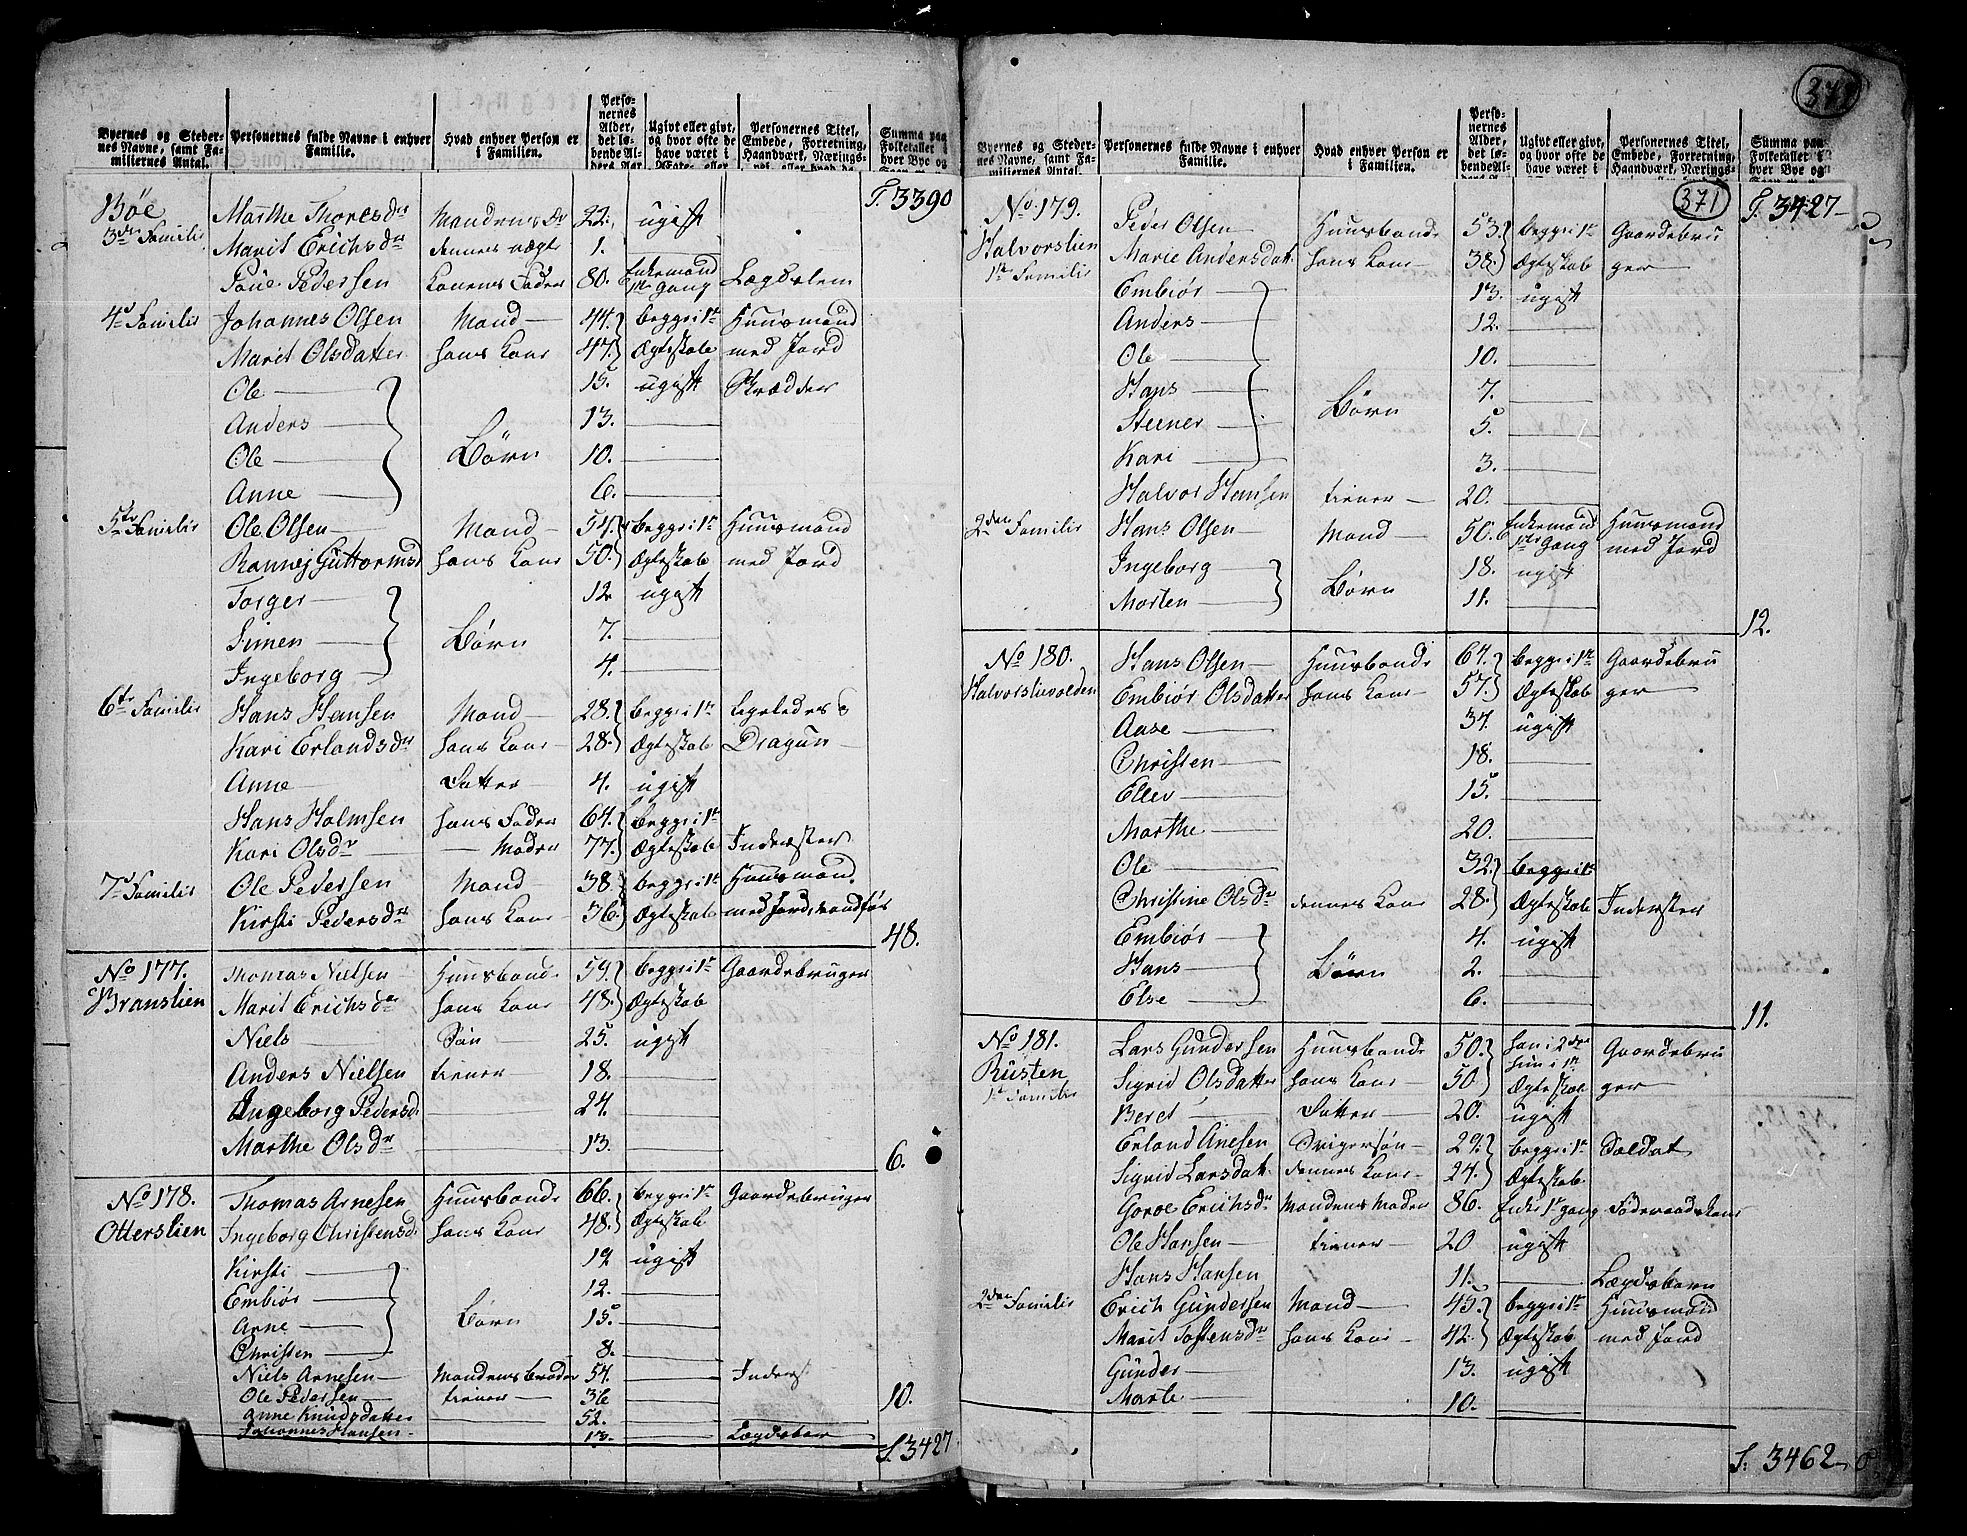 Byernes og Steder-nes Navne, samt Fa-miliernes Antal. | Personernes fulde Navne i enhver Familie. | Hvad enhver Person er i Familien. | Perso-nernes Alder, det lø-bende Al-ders Aar | Ugivt eller givt, og hvor ofte de have været i Ægte- eller | Personernes Titel, Embede, Forretning, Haandværk, Nærings- | Summa paa Folketallet i hver Bye og
T. 3390
Böe 3die Familie Marthe Thoresdr Mandens 22. ugift
Marit Erichsdr dennes ægte 1.
Poüel Pedersen Konens Fader 80. Enkemand 1te Gang Lægdslem
4de Familie Johannes Olsen Mand 44. begge i 1te Huusmand
Marit Olsdatter hans Kone 47. Ægteskab med Jord
Ole 15. ugift Skrædder
Anders 13.
Ole Börn 10.
Anne 6.
5te Familie Ole Olsen Mand 54. begge i 1te Huusmand
Rannej Guttormsd hans Kone 50. Ægteskab med Jord
Torger 12 ugift
Simen Börn 7.
Ingeborg 4.
6te Familie Hans Hansen Mand 28. begge i 1te Ligeledes &
Kari Erlandsdr hans Kone 28. Ægteskab Dragun
Anne Datter 4. ugift
Hans Halmsen hans Fader 64. begge i 1te
Kari Olsdr Moder 77. Ægteskab Inderster
7de Familie Ole Pedersen Mand 38. begge i 1te Huusmand
Kirsti Pedersdr hans Kone 36. Ægteskab med Jord
48.
No 177. Thomas Nielsen Huusbonde 59. begge i 1te Gaardebruger
Branslien Marit Erichsdr hans Kone 48. Ægteskab
Niels Sön 25. ugift
Anders Nielsen tiener 18.
Ingeborg Pedersd 24.
Marthe Olsdr 13.
6.
No 178. Thomas Arnesen Huusbonde 66. begge i 1te Gaardebruger
Otterslien Ingeborg Christensd hans Kone 48. Ægteskab
Kirsti 19 ugift
Embiör 12.
Arne Börn 15.
Christen 8.
Niels Arnesen Mandens Broder 54. Inderst
Ole Pedersen tiener 36
10.
Anne Knudsdatter 52.
Johannes Hansen 13. Lægdsbar
S. 3427
Byernes og Steder-nes Navne, samt Fa-miliernes Antal. | Personernes fulde Navne i enhver Familie. | Hvad enhver Person er i Familien. | Perso-nernes Alder, det lø-bende Al- | Ugivt eller givt, og hvor ofte de have været i | Personernes Titel, Embede, Forretning, Haandværk, Nærings- | Summa paa Folketallet i hver Bye og
371
T. 3427
No 179. Peder Olsen Huusbonde 53. begge i 1te Gaardebru
Halvorslien Marie Andersdatt hans Kone 38. Ægteskab ger
1te Familie Embiör 13. ugift
Anders 12.
Ole 10.
Hans 7.
Steener Börn 5.
Kari 3.
Halvor Hansen tiener 20.
2den Familie Hans Olsen Mand 50. Enkemand 1te Gang Huusmand med Jord
Ingeborg 18. ugift
Morten Börn 11.
12.
No 180. Hans Olsen Huusbonde 64. begge i 1te Gaardebru
Halvorslievolden Embiör Olsdatter hans Kone 57. Ægteskab ger
Aase 34. ugift
Christen 18.
Ellev 15.
Marthe 20.
Ole 32. begge i 1te
Christine Olsdr dennes Kone 28. Ægteskab Inderster
Embiör 4. ugift
Hans Börn 2.
Else 6.
11.
No 181. Lars Gundersen Huusbonde 50. han i 2det hun i 1te Gaardebru
Rüsten Sigrid Olsdatter hans Kone 50 Ægteskab ger
1te Familie Beret Datter 20. ugift
Erland Anesen Svigersön 29. begge i 1te Soldat
Sigrid Larsdatt dennes Kone 24. Ægteskab
Goroe Erichsdr Mandens Moder 86. Enke 1te gang Föderaadskone
Ole Hansen tiener 20 ugift
Hans Hansen 11. Lægdsbarn
2den Familie Erich Gundersen Mand 45. begge i 1te Huusmand
Marit Tostensdr hans Kone 42. Ægteskab med Jord
Günder 13. ugift
Marte 10.
S. 3462